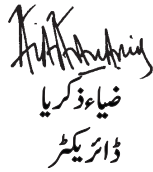 ضیاء ذکریا
ڈائریکٹر